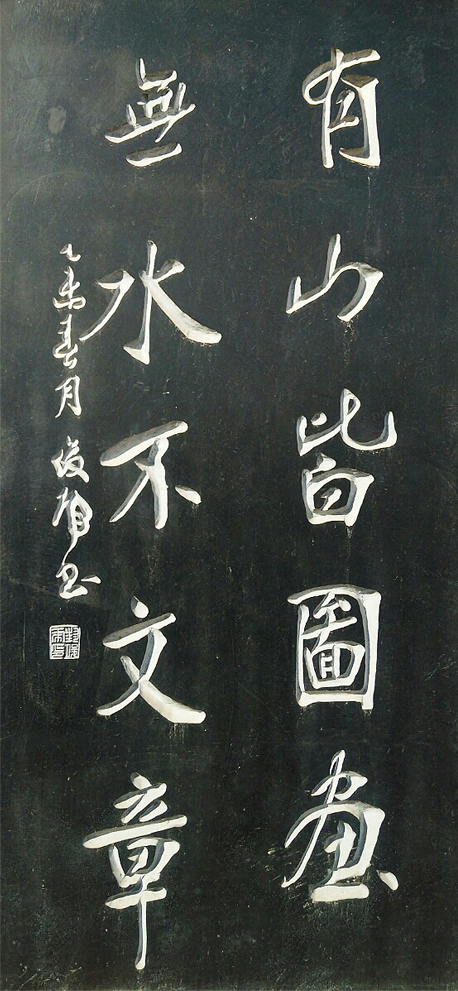 有山皆圖畫
無水不文章
乙未春月